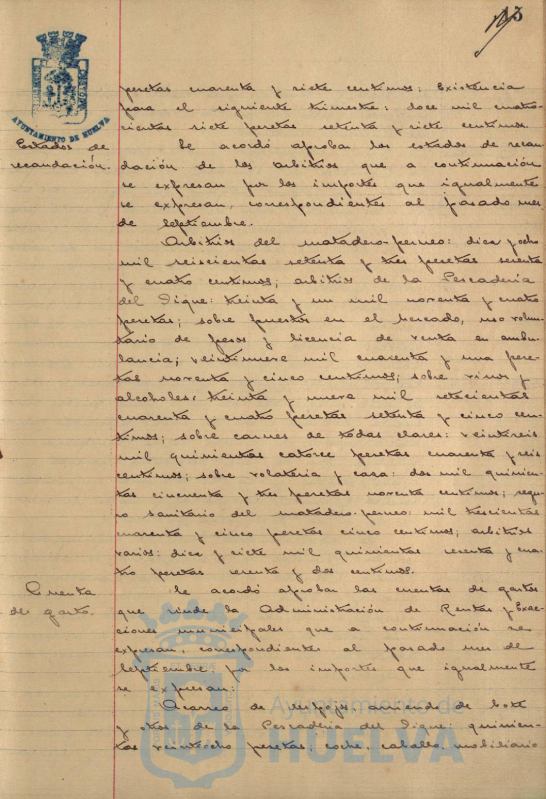 AYUNTAMIENTO DE HUELVA
pesetas cuarenta y siete centimos; Existencia
para el siguiente trimestre: doce mil cuatro-
cientas siete pesetas setenta y siete centimos.
Estados de
recaudación.
Se acordó aprobar los estados de recau-
dación de los arbitrios que a continuación
se expresan por los importes que igualmente
se expresan, correspondientes al pasado mes
de Septiembre.
Arbitrios del matadero-perneo: diez y ocho
mil seiscientas setenta y tres pesetas
y cuatro centimos; arbitrios de la Pescaderia
del Dique: treinta y un mil noventa y cuatro
pesetas; sobre puestos en el Mercado, uso volun-
tario de pesos y licencia de venta en ambu-
lancia; veintinueve mil cuarenta y una pese-
tas noventa y cinco centimos; sobre vinos y
alcoholes, treinta y nueve mil setecientas
cuarenta y cuatro pesetas setenta y cinco cen-
timos; sobre carnes de todas clases: veintiseis
mil quinientas catorce pesetas cuarenta y seis
centimos; sobre volateria y caza: dos mil quinien-
tas cincuenta y tres pesetas noventa centimos; segu-
ro sanitario del matadero-perneo: mil trescientas
cuarenta y cinco pesetas cinco centimos; arbitrios
varios: diez y siete mil quinientas y cua-
tro pesetas y dos centimos.
Cuenta
de gastos.
Se acordó aprobar las cuentas de gastos
que rinde la Administración de Rentas y Exac-
ciones municipales que a continuación se
expresan, correspondientes al pasado mes de
Septiembre, por los importes que igualmente
se expresan:
Acarreo de despojos, arriendo de bote
y otros de la Pescaderia del Dique: quinien-
tas veintiocho pesetas; coche, caballo, mobiliario
Ayuntamiento de
HUELVA